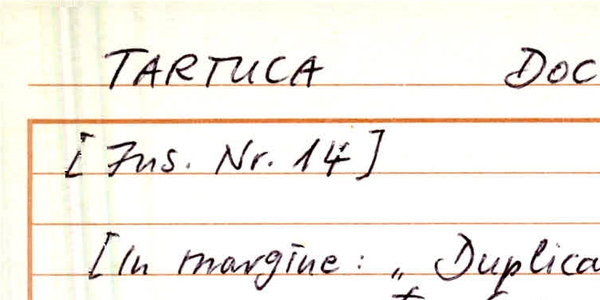 TARTUCA DOC
[Ins. Nr. 14]
[In margine: „Duplica